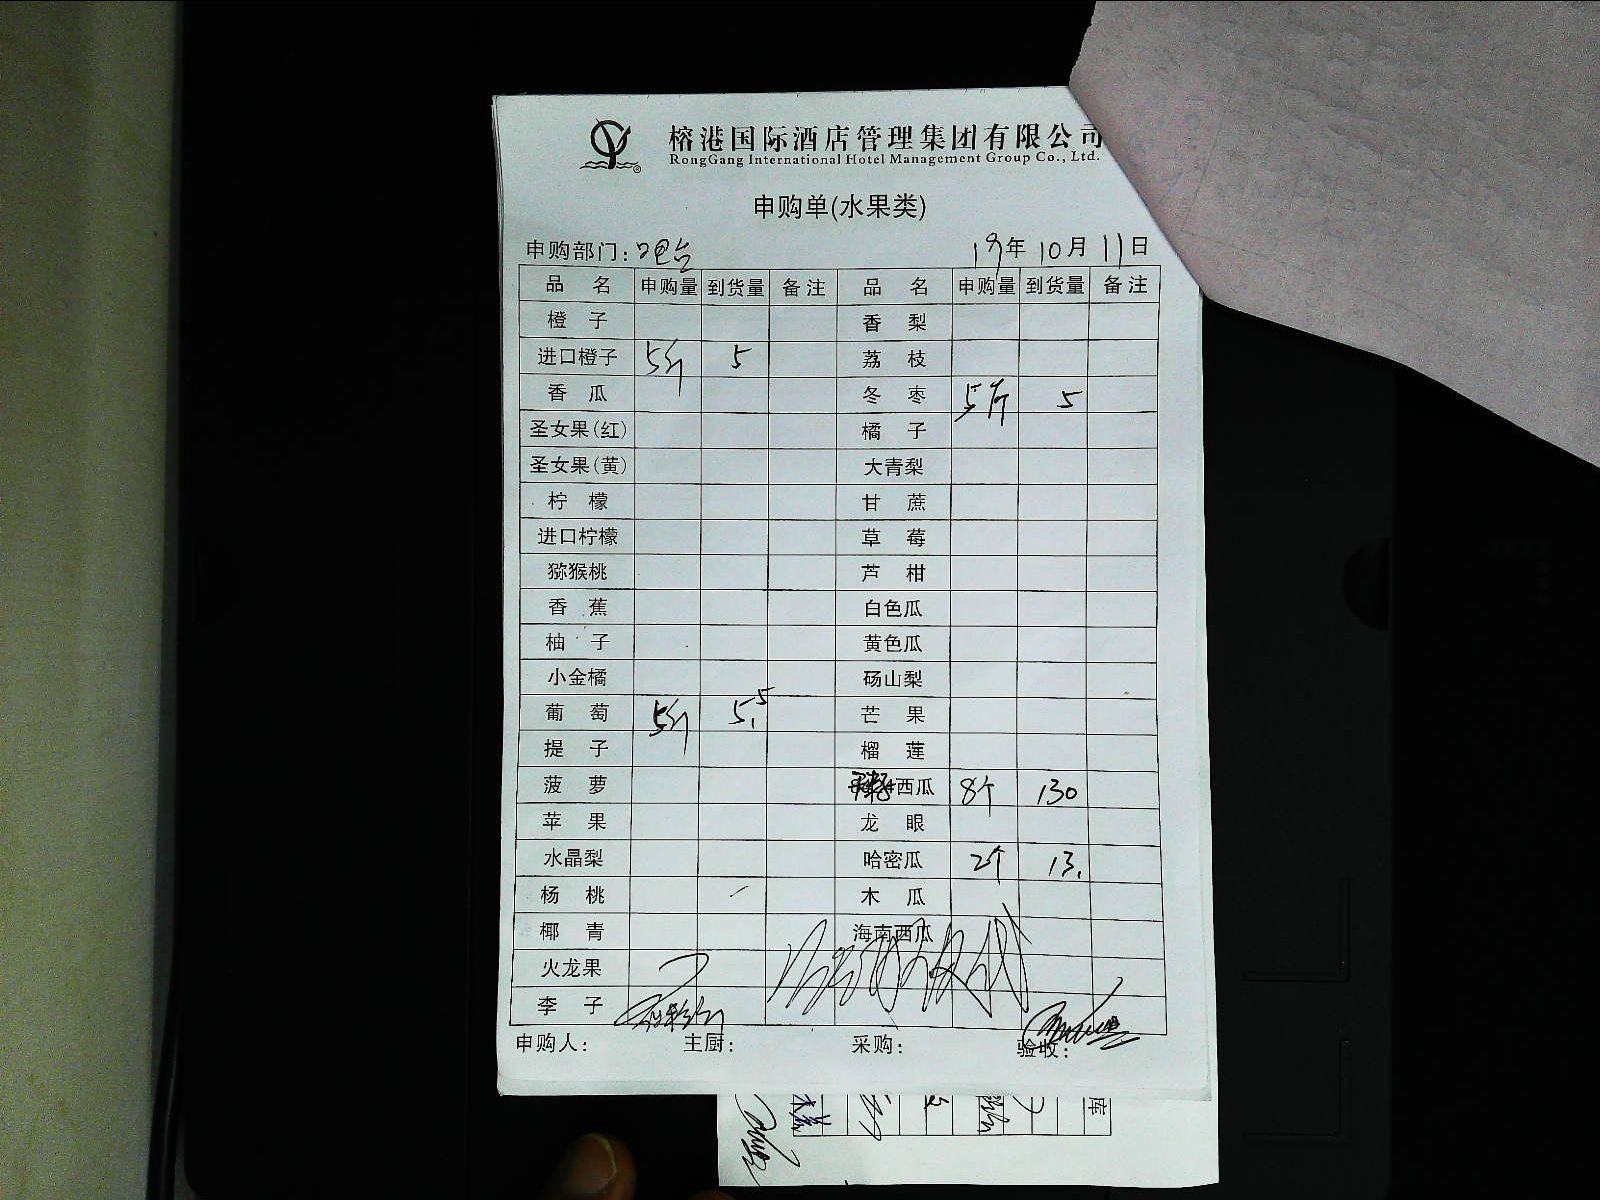 榕港国际酒店管理集团有限公司
RongGang International Hotel Management Group Co., Ltd.
申购单(水果类)
申购部门: 吧台 19年10月11日
品 名 申购量 到货量 备注 品 名 申购量 到货量 备注
橙 子 香 梨
进口橙子 5斤 5 荔 枝
香 瓜 冬 枣 5斤 5
圣女果(红) 橘 子
圣女果(黄) 大青梨
柠 檬 甘 蔗
进口柠檬 草 莓
猕猴桃 芦 柑
香 蕉 白色瓜
柚 子 黄色瓜
小金橘 砀山梨
葡 萄 5斤 5.5 芒 果
提 子 榴 莲
菠 萝 西瓜 8个 130
苹 果 龙 眼
水晶梨 哈密瓜 2个 13.
杨 桃 木 瓜
椰 青 海南西瓜
火龙果
李 子
申购人: 主厨: 采购: 验收:
库